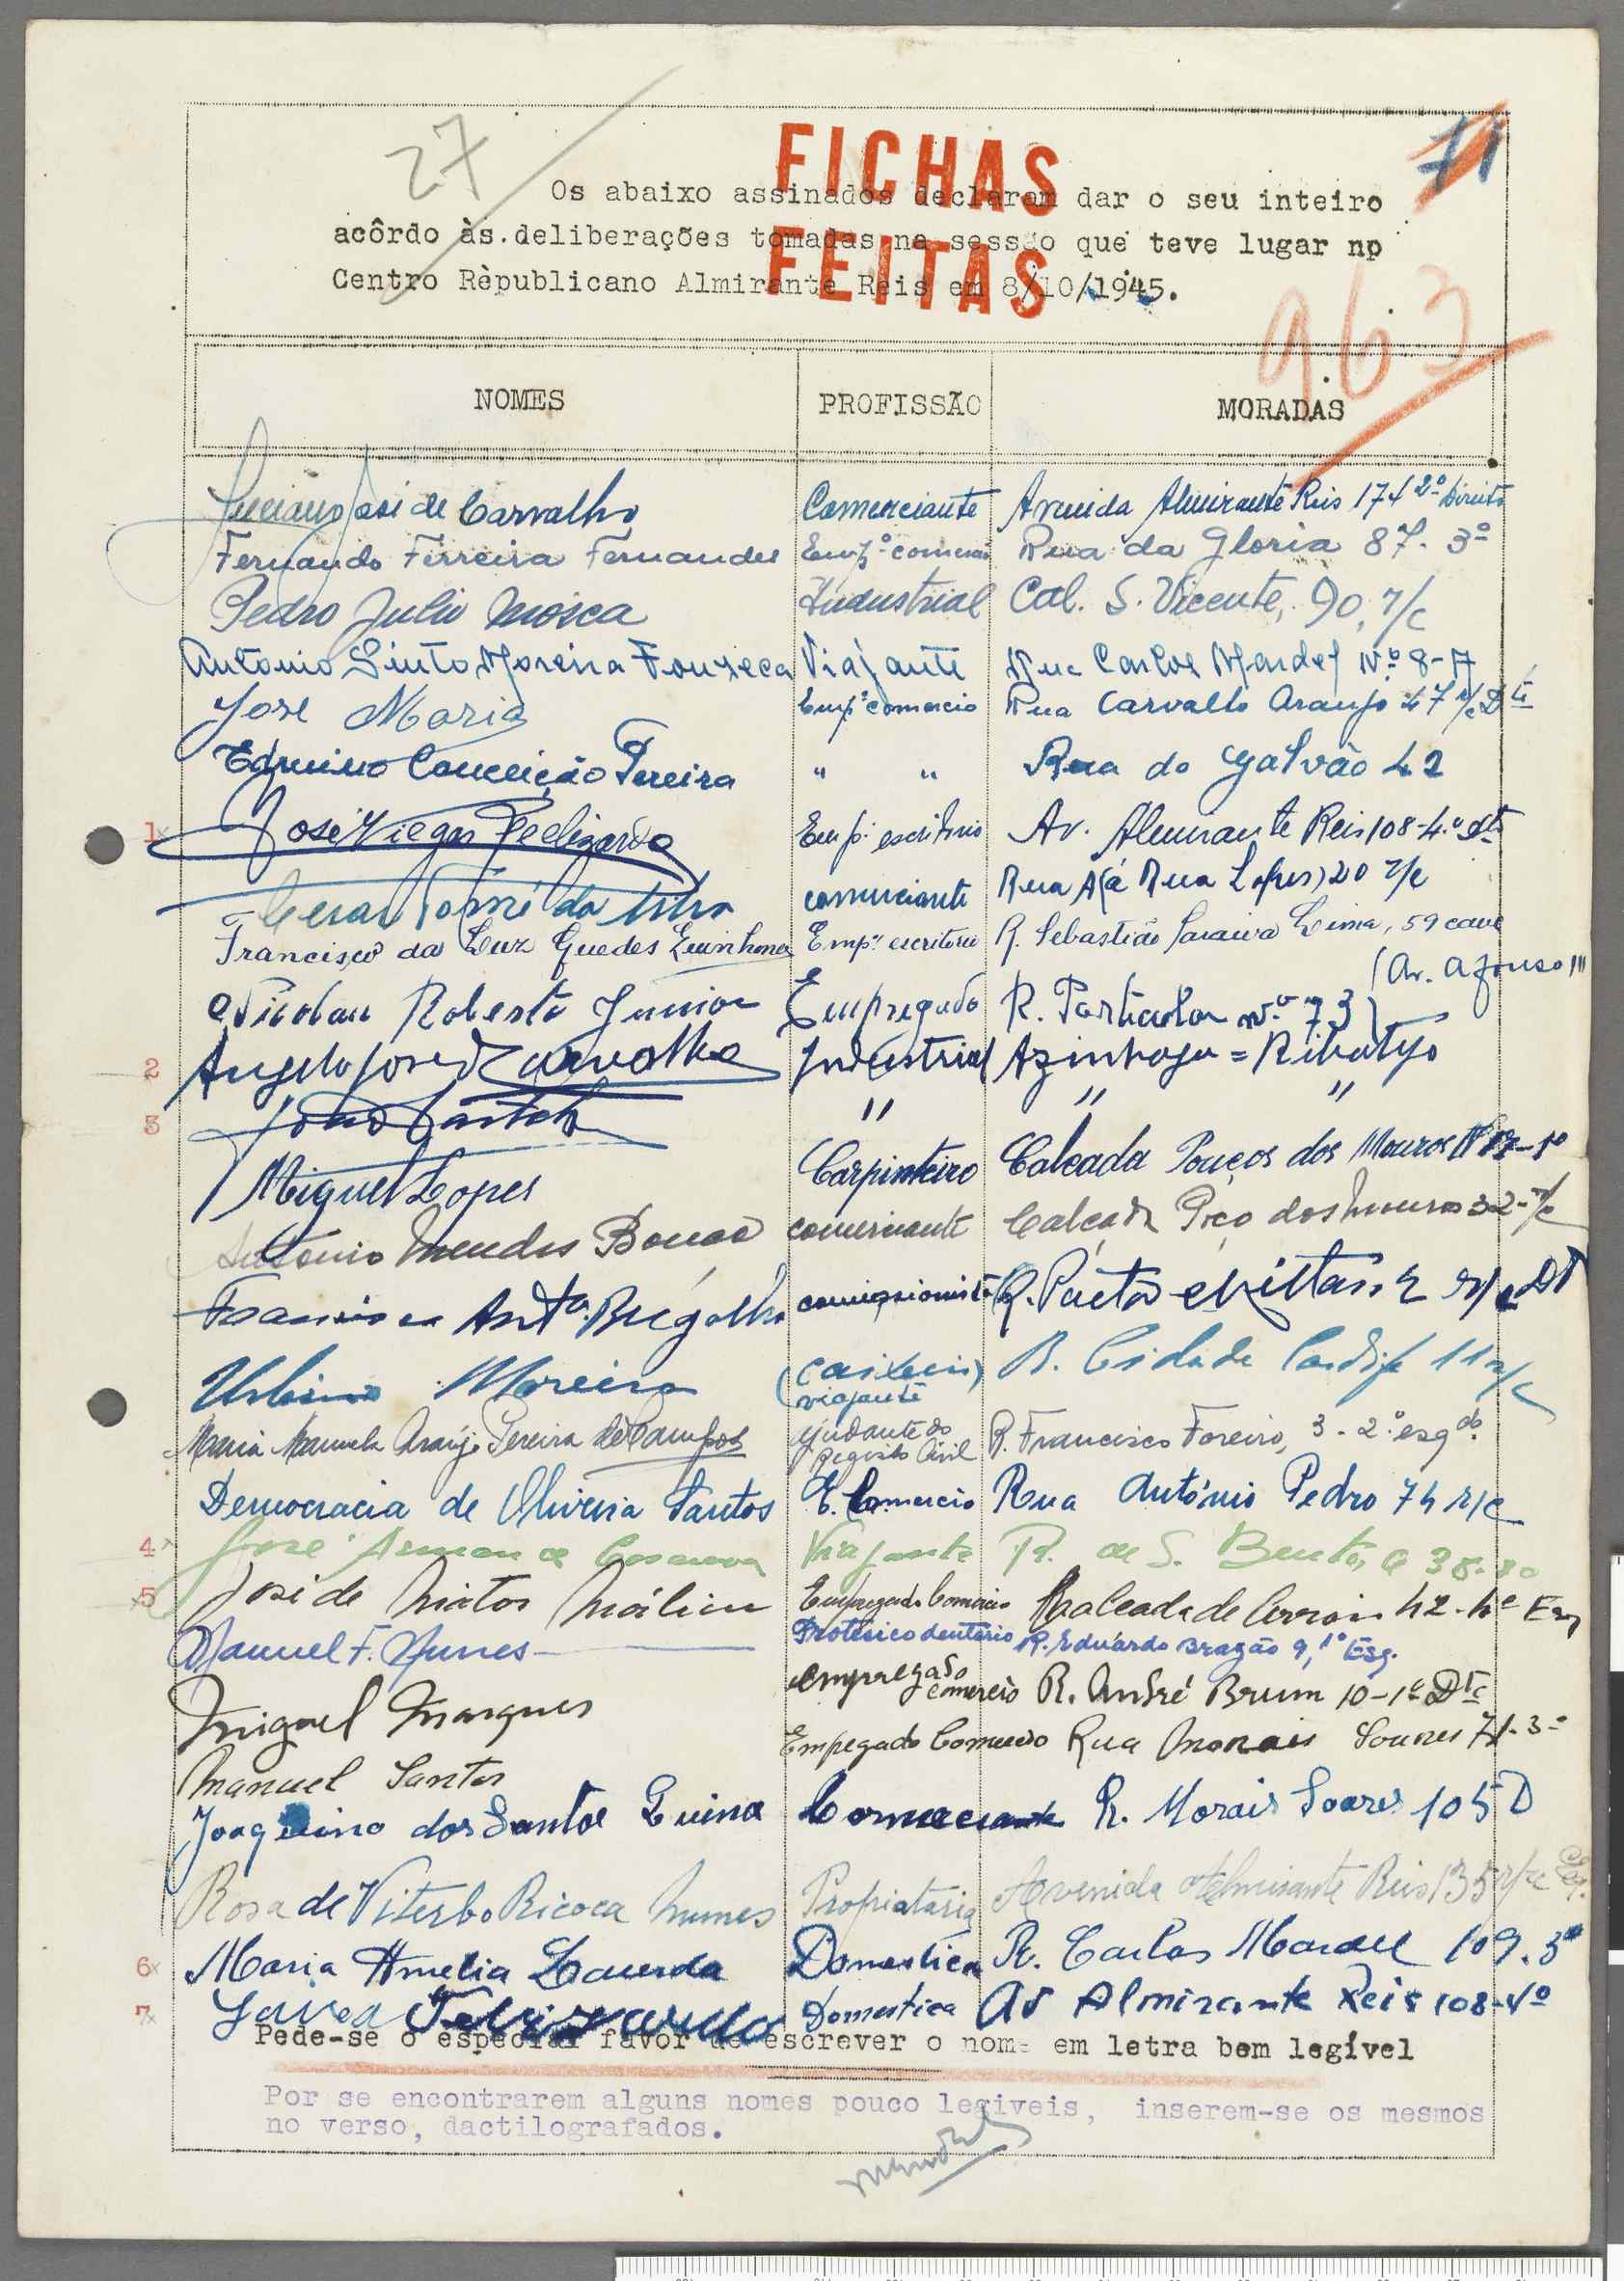 27
71
FICHAS
FEITAS
Os abaixo assinados declaram dar o seu inteiro
acôrdo às deliberações tomadas na sessão que teve lugar no
Centro Rèpublicano Almirante Reis em 8/10/1945.
963
NOMES PROFISSÃO MORADAS
Luciano José de Carvalho Comerciante Avenida Almirante Reis 174 2º Direito
Fernando Ferreira Fernandes Empº comercio Rua da Gloria 87. 3º
Pedro Julio Mosca Industrial Cal. S. Vicente, 90, r/c
Antonio Pinto Moreira Fonseca Viajante Rua Carlos Mardel Nº 8-
José Maria Empº comercio Rua Carvalho Araujo 47 r/c Dtº
Conceição Pereira " " Rua do Galvão 42
1x José Viegas Felizardo Emp. escritorio Av. Almirante Reis 108-4.º dto
Cesar Tomé da Silva comerciante Rua A (á Rua Lopes) 20 r/c
Francisco da Luz Guedes Empº escritorio R. Sebastião Saraiva Lima, 59 cave
(Av. Afonso III
Nicolau Roberto Junior Empregado R. Particular nº 73)
2 Angelo José Carvalho Industrial Azinhaga = Ribatejo
3 João " " "
Miguel Lopes Carpinteiro Calçada Pouços dos Mouros
António Mendes comerciante Calçada Poço dos Mouros 32-r/c
Francisco Antº comissionista R. r/c Dt
Urbino Moreira (caixeiro) R. Cidade Cardife 11 r/c
viajante
Maria Manuela Araújo Pereira de Campos ajudante do R. Francisco Foreiro, 3-2º esqdo.
Registo Civil
Democracia de Oliveira Santos E. Comercio Rua António Pedro 74 r/c
4x José Casanova Viajante R. de S. Bento,
5x José de Matos Empregado Comercio Calçada de Arroios 42-4º Esq
Manuel F. Nunes Protésico dentário R. Eduardo Brazão 9, 1º Esq.
empregado
Miguel Marques comercio R. André Brum 10-1º Dtº
Manuel Santos Empegado Comercio Rua Morais Soares 71-3º
Joaquino dos Santos Guina Comerciante R. Morais Soares 105 D
Rosa de Viterbo Ricoca Nunes Propiataria Avenida Almirante Reis 135 r/c Esq.
6x Maria Amelia Domestica R. Carlos Mardel 109.3º
7x Felizardo Domestica Av Almirante Reis 108-4º
Pede-se o especial favor de escrever o nome em letra bem legível
Por se encontrarem alguns nomes pouco legiveis, inserem-se os mesmos
no verso, dactilografados.